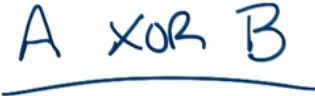 A XOR B